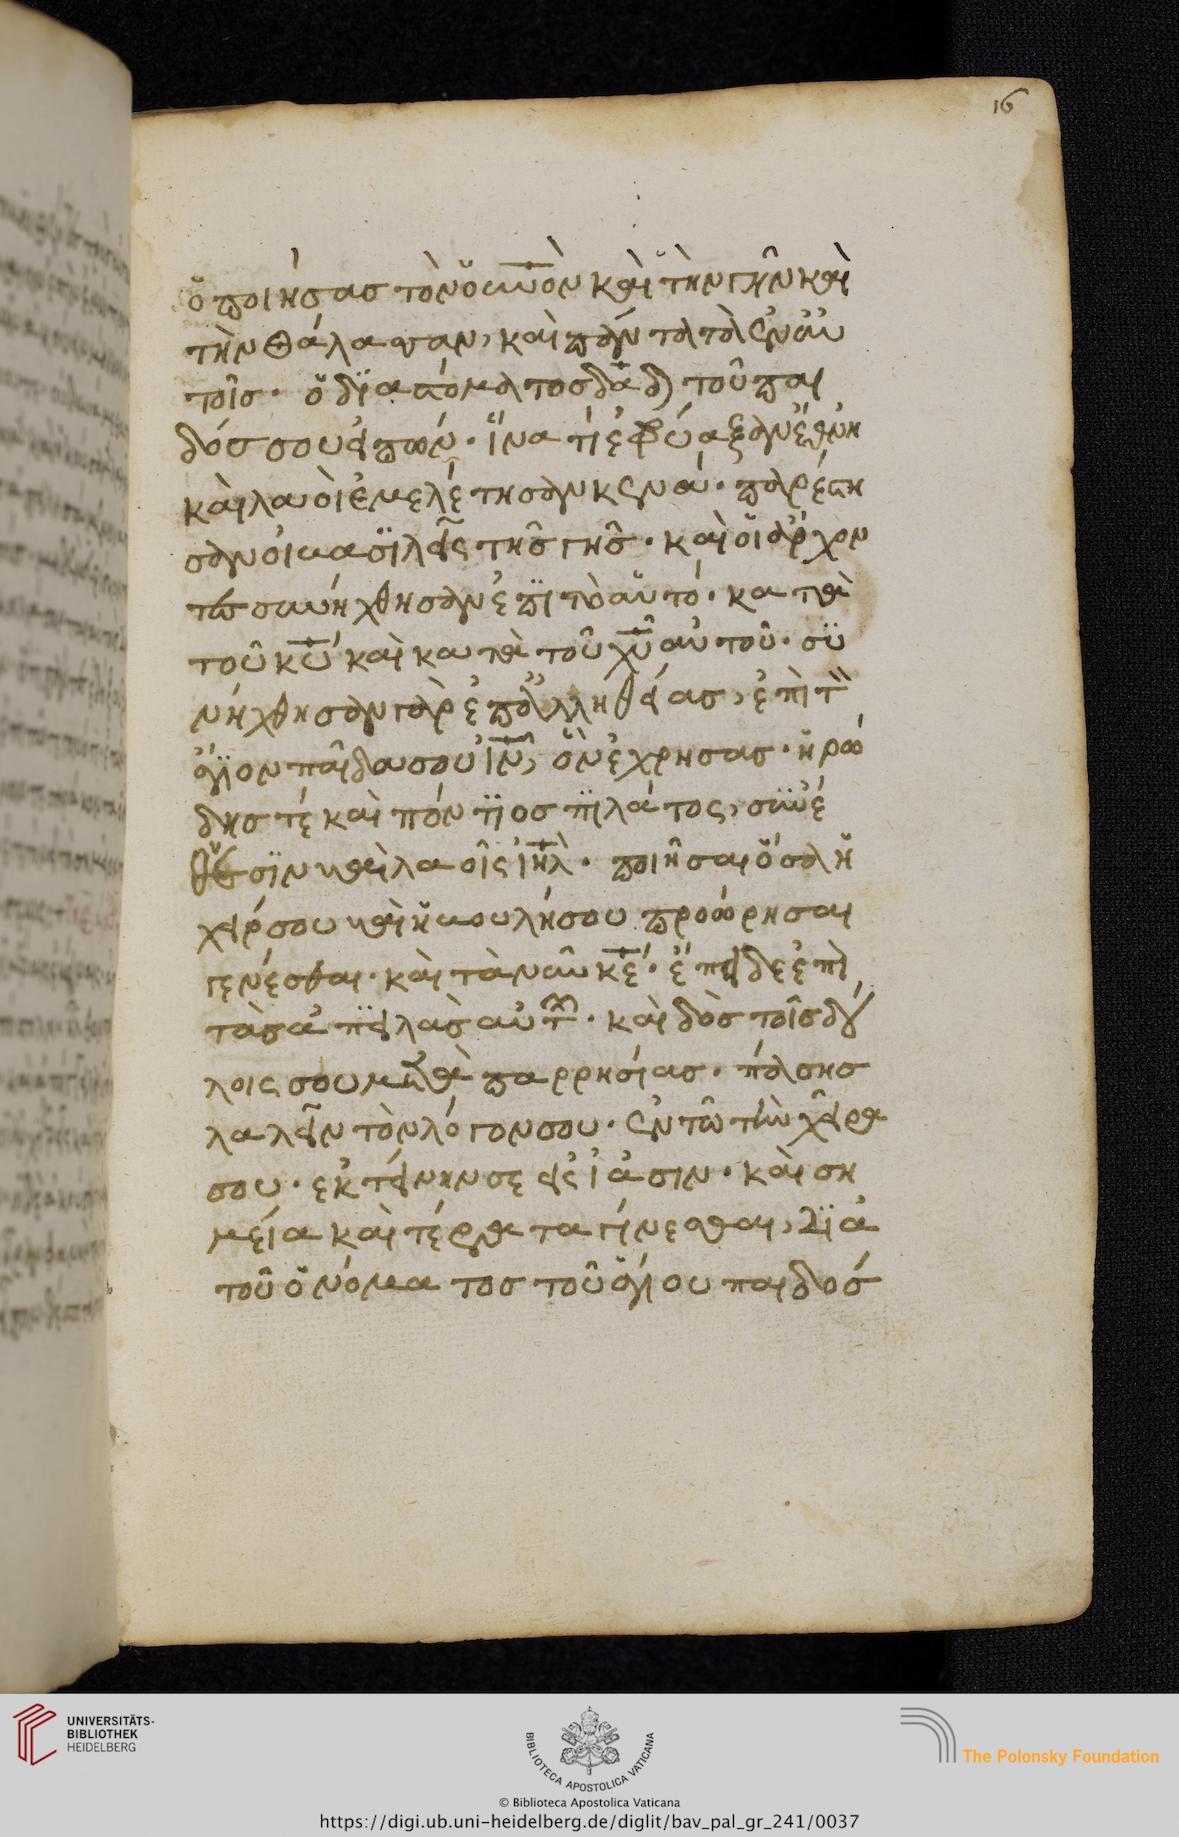 16
ὁ ποιήσας τὸν οὐνὸν καὶ τὴν γῆν καὶ
τὴν θάλασσαν, καὶ πάντα τὰ ἐν αὐ
τοῖς· ὁ δϊὰ στόματος δαδ τοῦ παι
δός σου εἰπών· ἵνα τί ἐφρύαξαν ἔθνη
καὶ λαοὶ ἐμελέτησαν κενά· παρέστη
σαν οἱ βασϊλεῖς τῆς γῆς· καὶ οἱ ἄρχον
τες συνήχθησαν ἐπϊ τὸ αὐτό· κατὰ
τοῦ κυ καὶ κατὰ τοῦ χυ αὐτοῦ· συ
νήχθησαν γὰρ ἐπ ἀλληθείας, ἐπὶ τ
ἅγϊον παῖδα σου ιν, ὃν ἔχρησας· ἡρώ
δης τέ καὶ πόντϊος πϊλάτος, σὺν ἔ
θνεσϊν καὶ λαοῖς ιηλ· ποιῆσαι ὅσα ἡ
χείρ σου καὶ ἡ βουλή σου προώρησαι
γενέσθαι· καὶ τὰ νῦν κε· ἔπιδε ἐπὶ
τὰς ἀπϊλὰς αὐτ· καὶ δὸς τοῖς δού
λοις σου μετὰ παρρησίας· πάσης
λαλεῖν τὸν λόγον σου· ἐν τῶ τὴν χεῖρα
σου· ἐκτείνην σε εἰς ἴασιν· καὶ ση
μεία καὶ τέρατα γίνεσθαι, δϊὰ
τοῦ ὀνόματος τοῦ ἁγίου παιδός
UNIVERSITÄTS-
BIBLIOTHEK
HEIDELBERG
BIBLIOTECA APOSTOLICA VATICANA
The Polonsky Foundation
© Biblioteca Apostolica Vaticana
https://digi.ub.uni-heidelberg.de/diglit/bav_pal_gr_241/0037